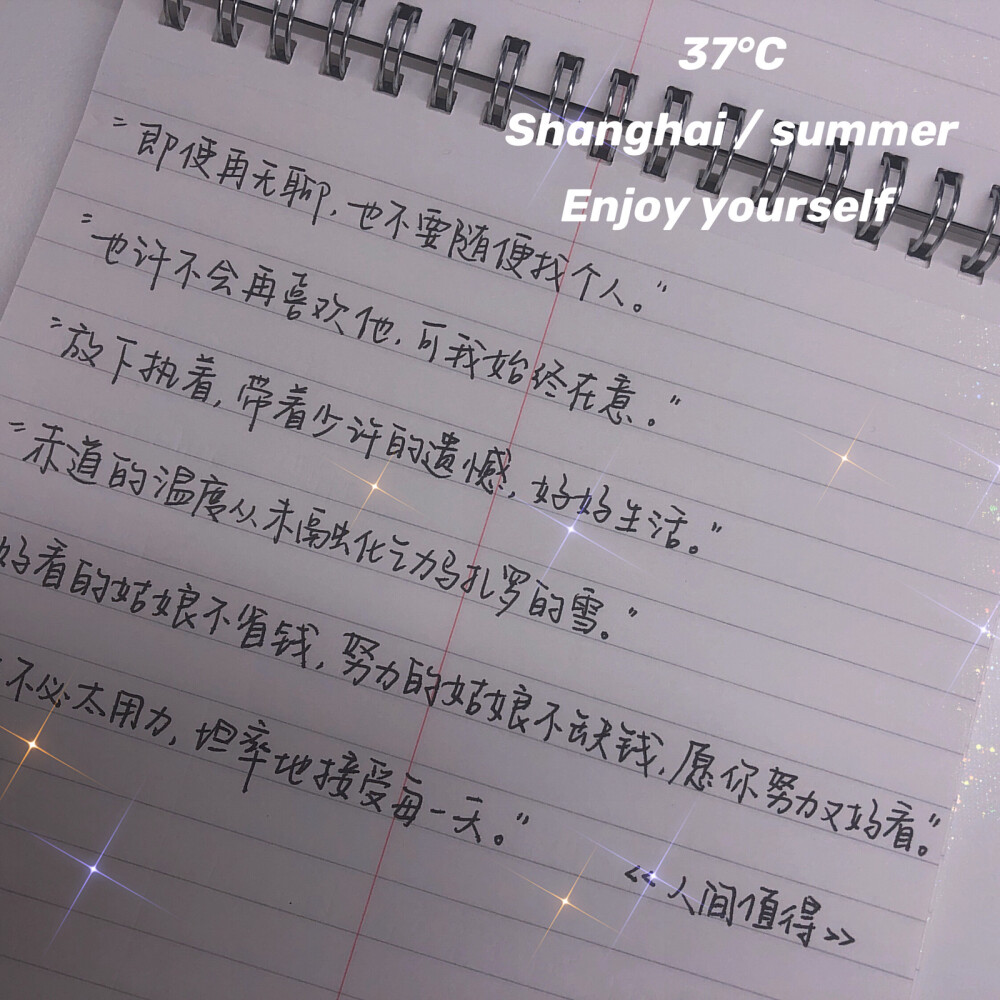 37°C
Shanghai / summer
Enjoy yourself
"即使再无聊,也不要随便找个人。"
"也许不会再喜欢他,可我始终在意。"
"放下执着,带着少许的遗憾,好好生活。"
"赤道的温度从未融化乞力马扎罗的雪。"
好看的姑娘不省钱,努力的姑娘不缺钱,愿你努力又好看。"
"不必太用力,坦率地接受每一天。"
<<人间值得>>